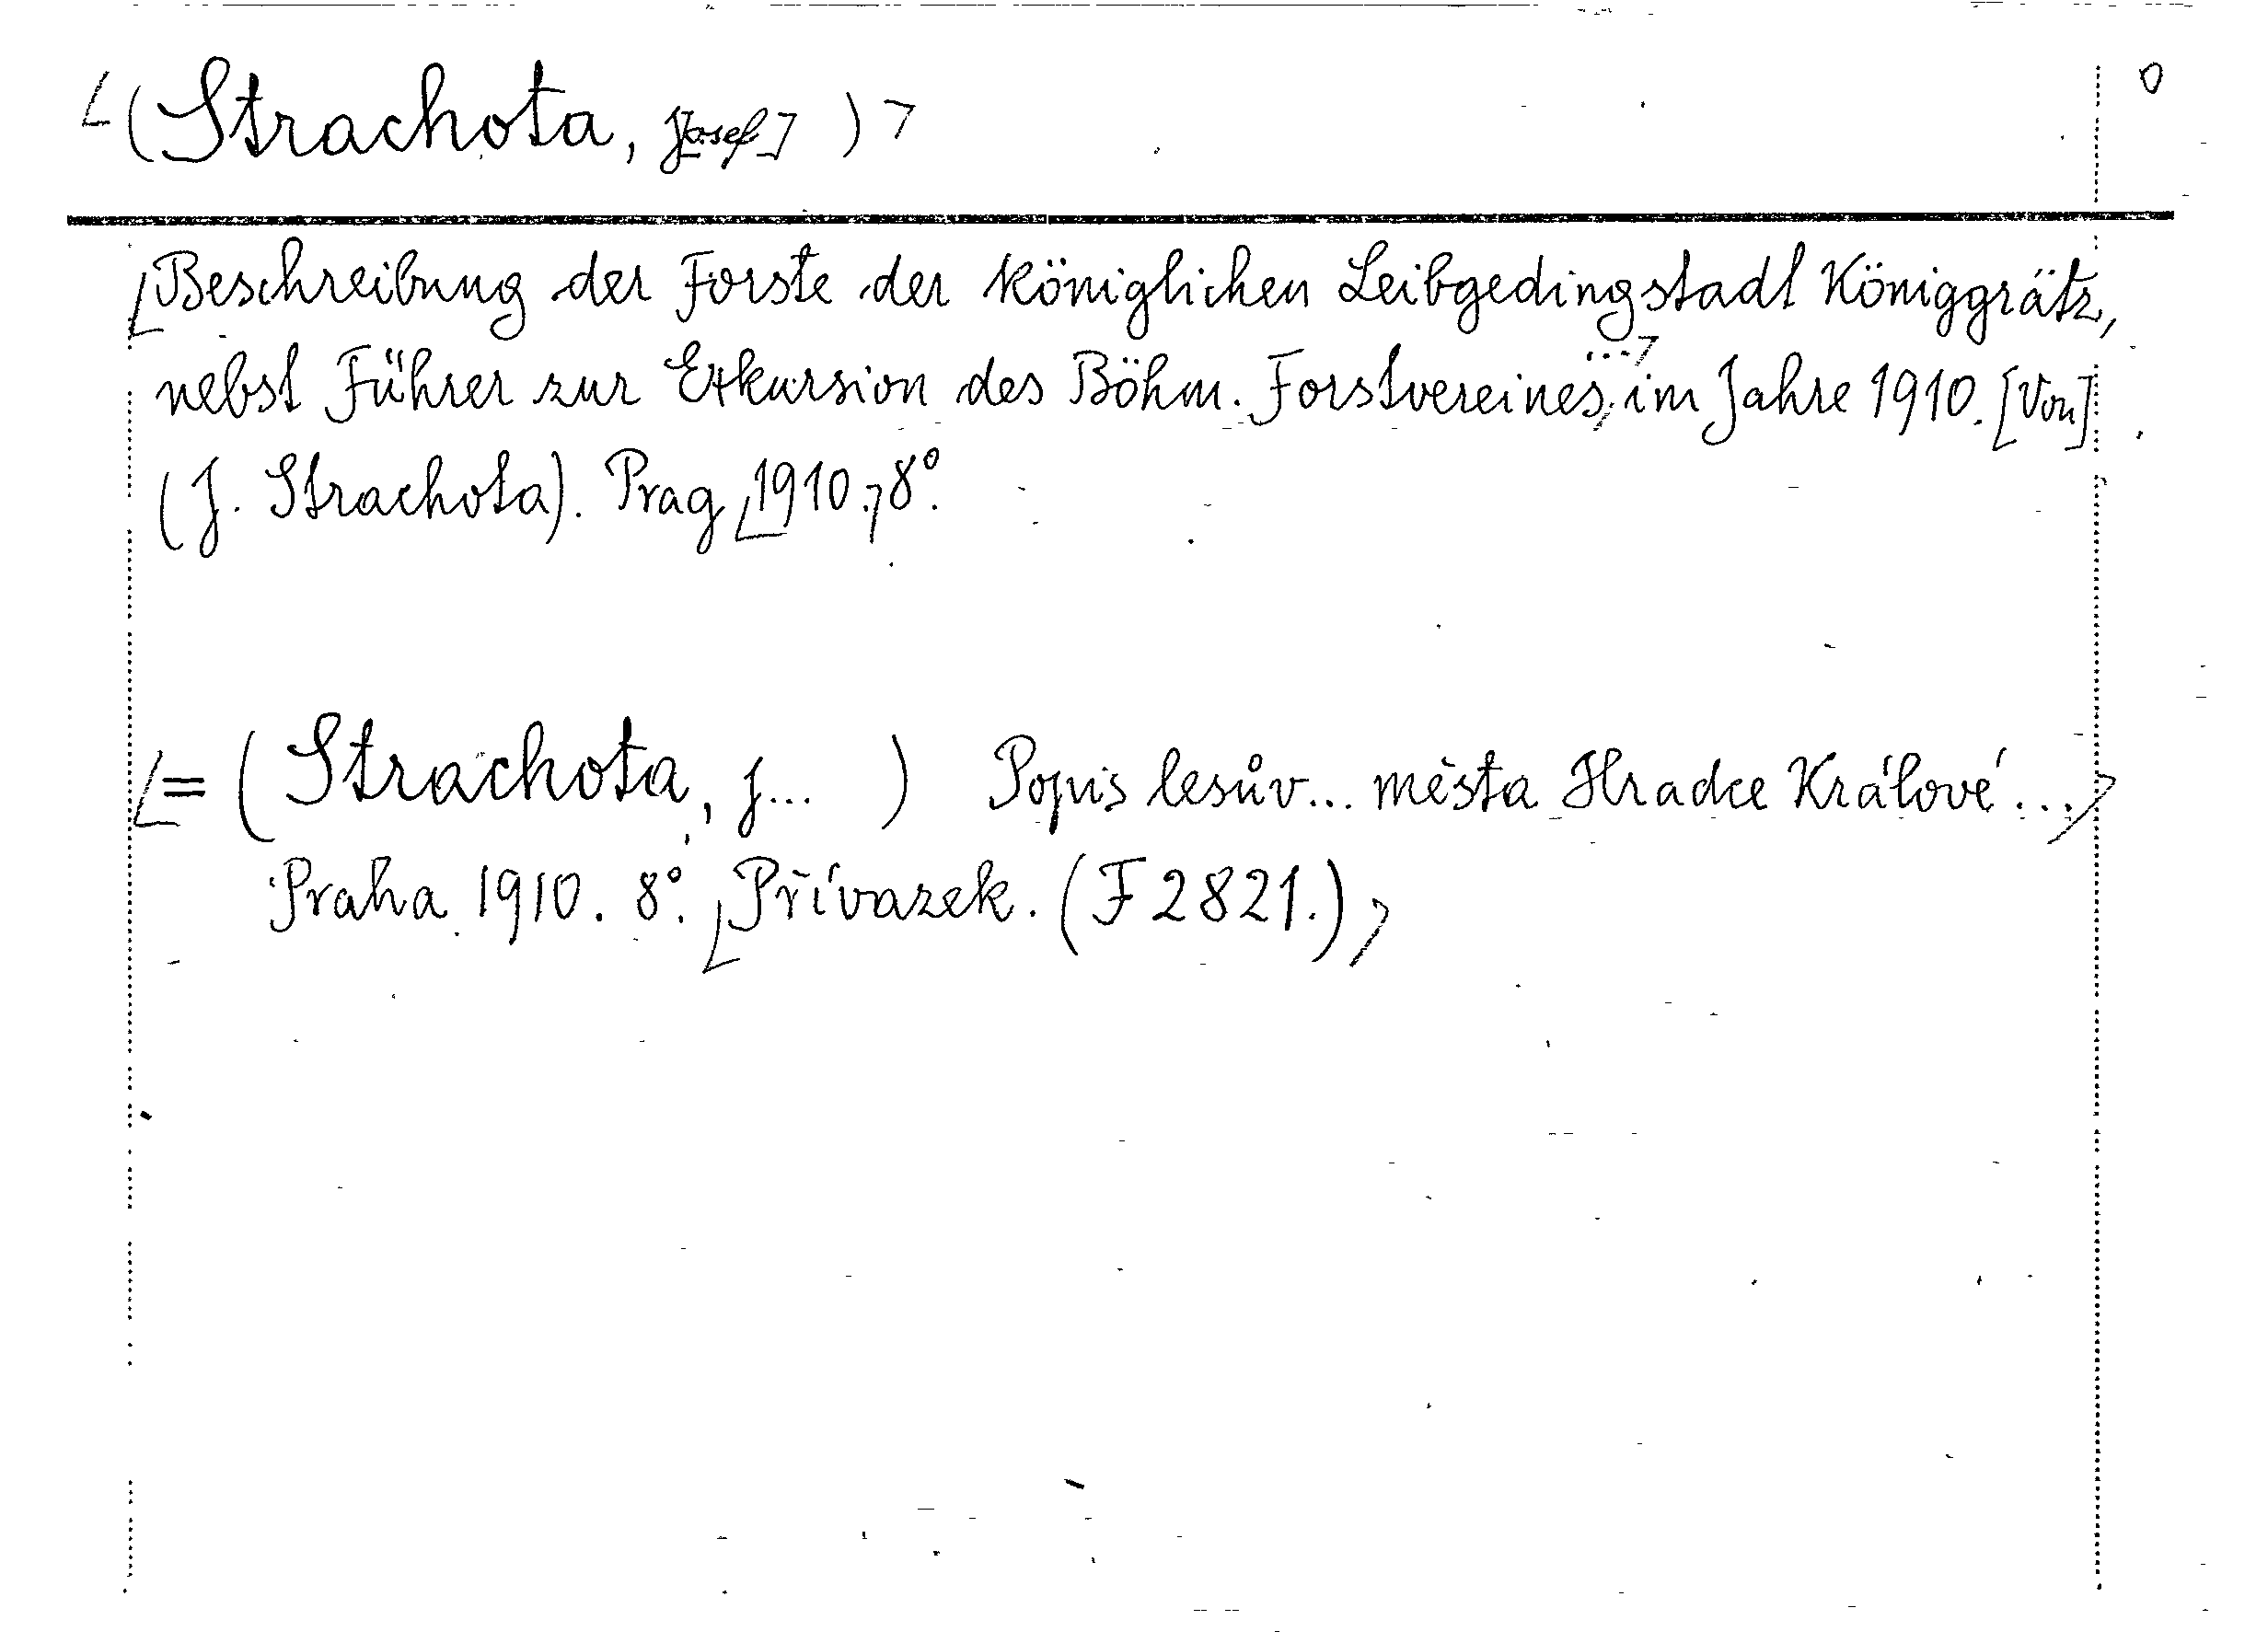 (Strachota, J[osef])
0
Beschreibung der Forste der königlichen Leibgedingstadt Königgrätz,
nebst Führer zur Exkursion des Böhm. Forstvereines ... im Jahre 1910. [Von]
(J. Strachota). Prag 1910. 8°.
= (Strachota, J... ) Popis lesův... města Hradce Králové ...
Praha 1910. 8°. Přívazek. (F 2821.)